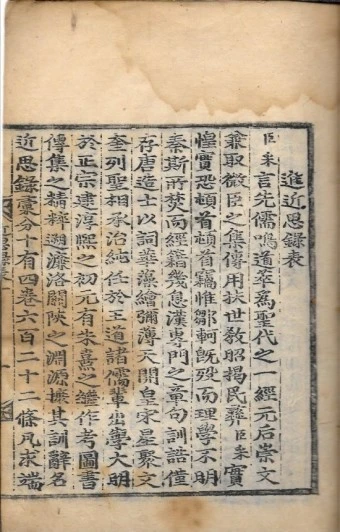 進近思錄表
臣采言先儒鳴道萃爲聖代之一經元后崇文
兼取微臣之集傳用扶世敎昭揭民彛臣采實
惶實恐頓首頓首竊惟鄒軻旣歿而理學不明
秦斯所焚而經籍幾息漢專門之章句訓詁僅
存唐造士以詞華藻繪彌薄天開皇宋星聚文
奎列聖相承治純任於王道諸儒輩出學大明
於正宗逮淳熙之初元有朱熹之繼作考圖書
傳集之精粹遡濂洛關陝之淵源摭其訓辭名
近思錄彙分十有四卷六百二十二條凡求端